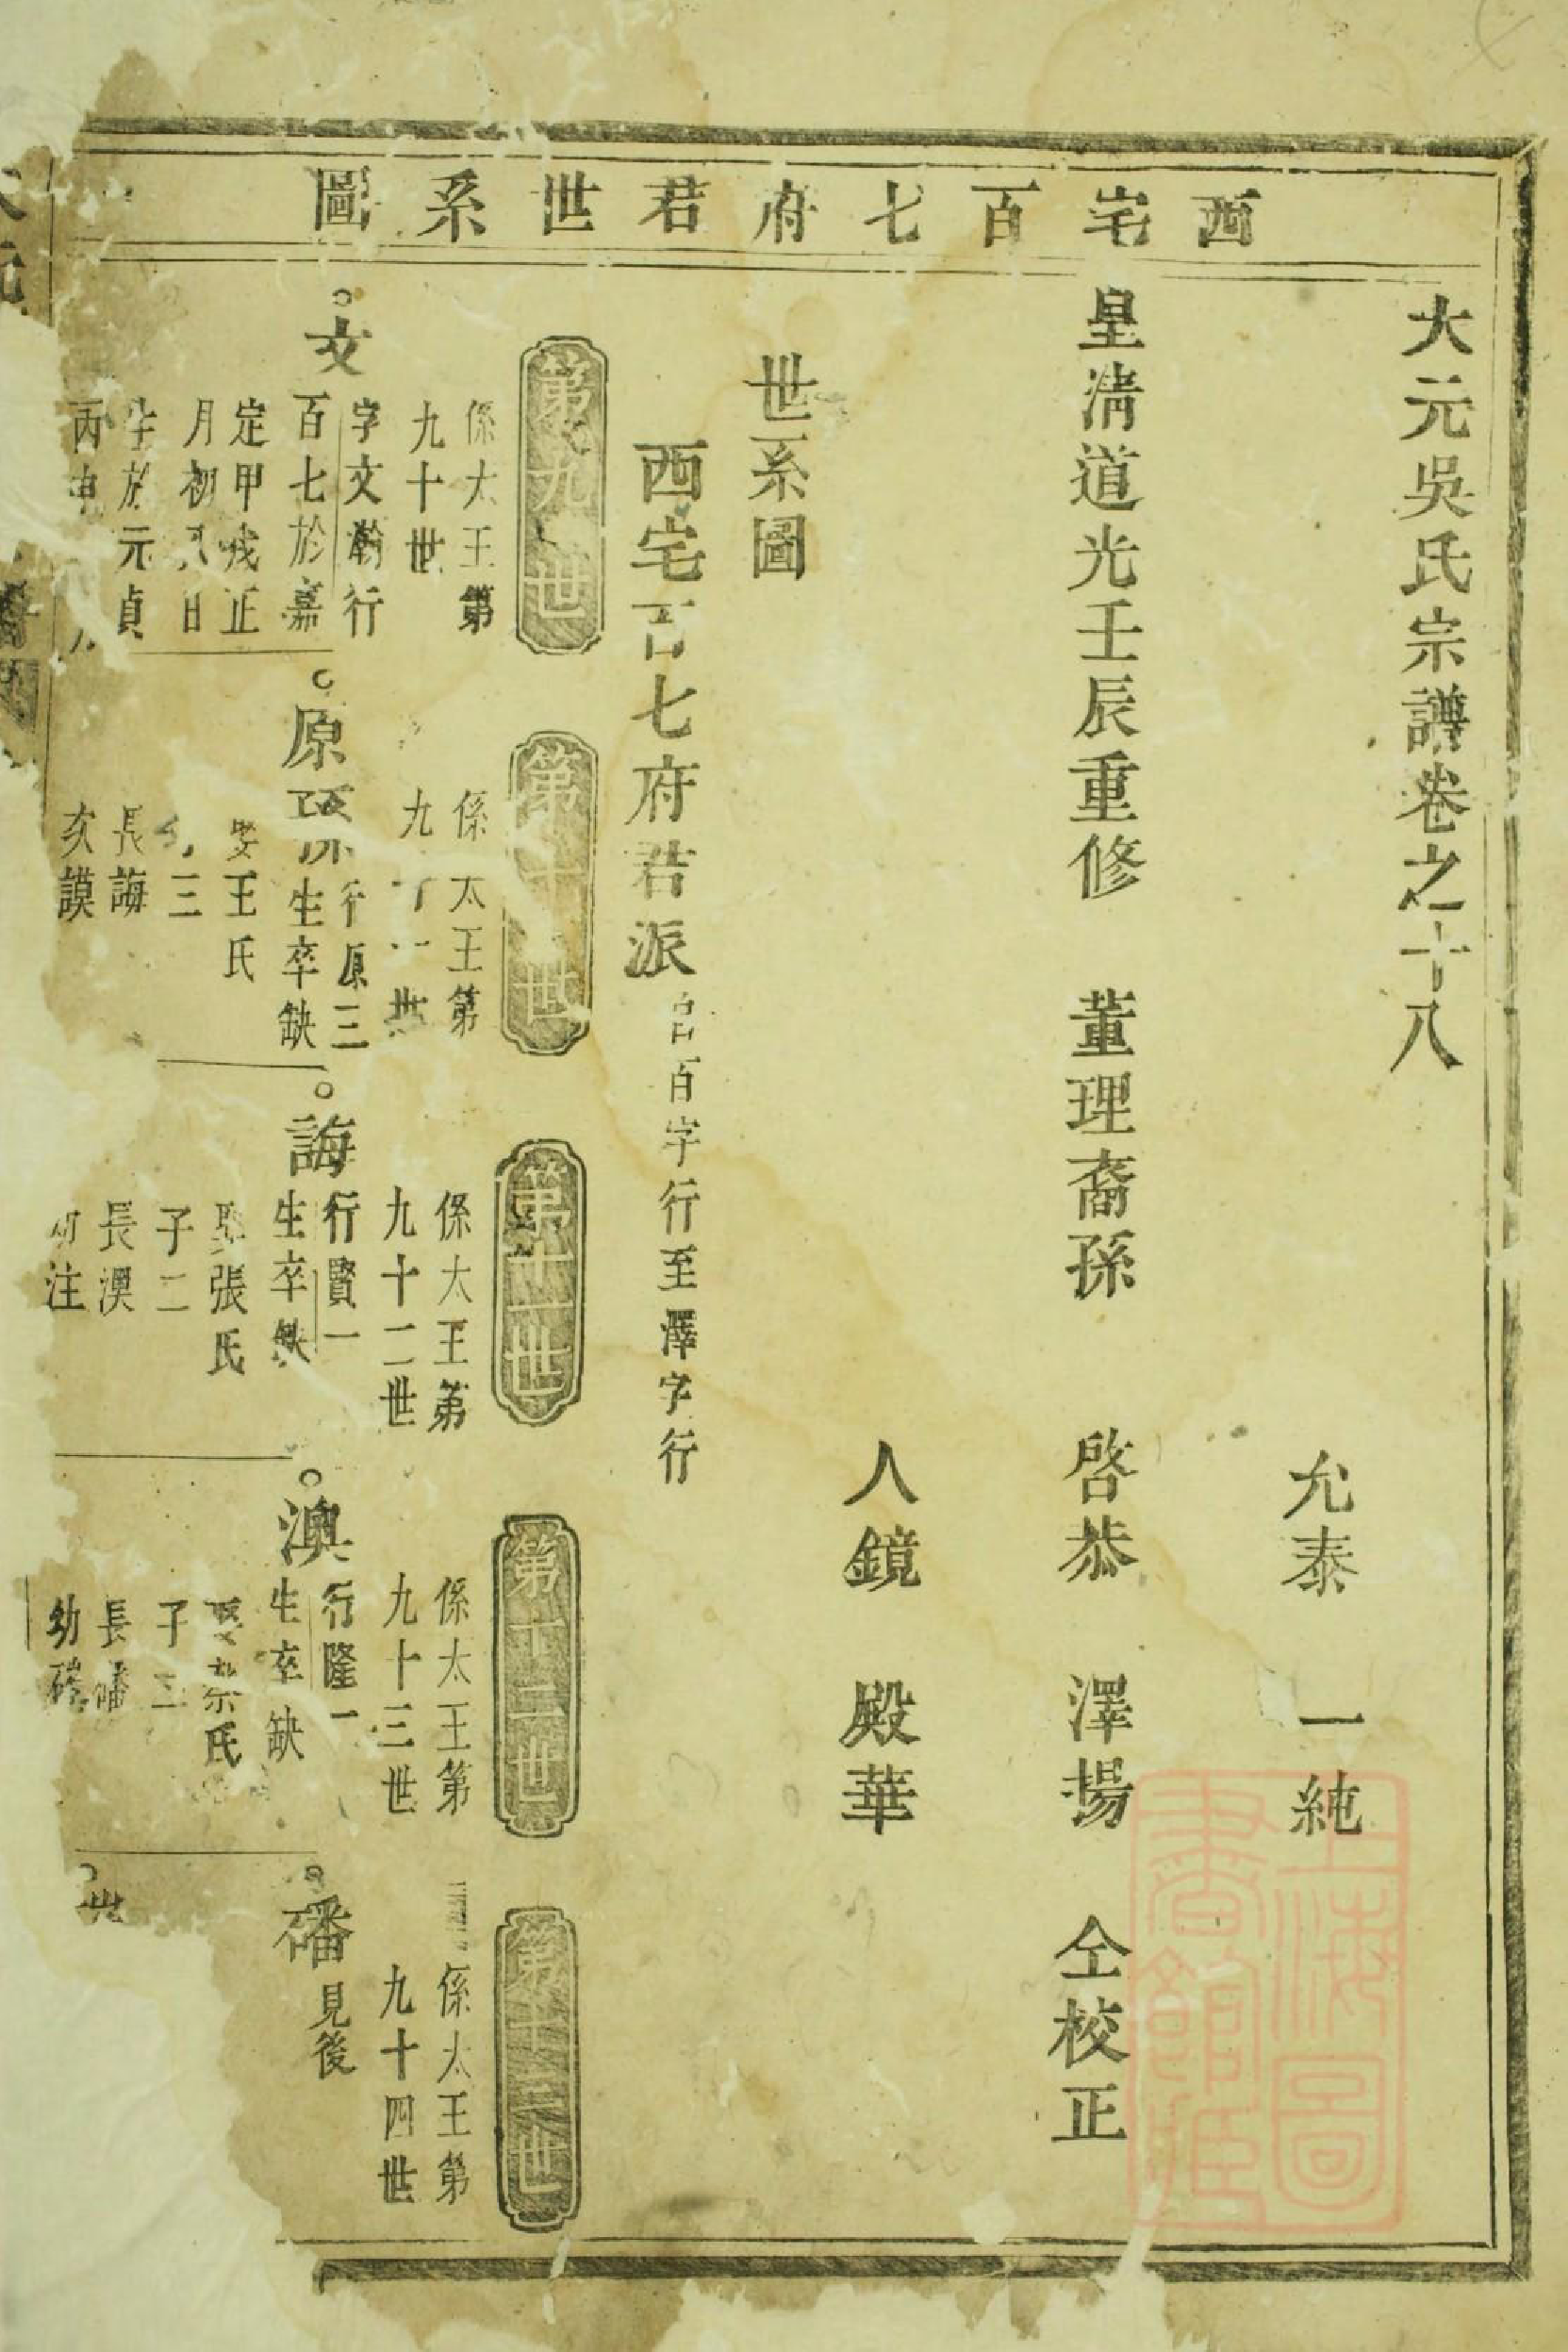 西宅百七府君世系圖
大元吳氏宗譜卷之十八
允泰 一純
皇淸道光壬辰重修 董理裔孫 啓恭 澤揚 仝校正
人鏡 殿華
世系圖
西宅百七府君派
百字行至澤字行
第九世
係太王第
九十世
文
字文瀚行
百七於嘉
定甲戌正
月初八日
生於元貞
丙申
第十世
係太王第
九十一世
原
行原三
生卒缺
娶王氏
三
長誨
次謨
第十一世
係太王第
九十二世
誨
行賢一
生卒缺
娶張氏
子二
長澳
注
第十二世
係太王第
九十三世
澳
行隆一
生卒缺
氏
子三
長磻
幼
第十三世
係太王第
九十四世
磻
見後
上海圖
書館藏